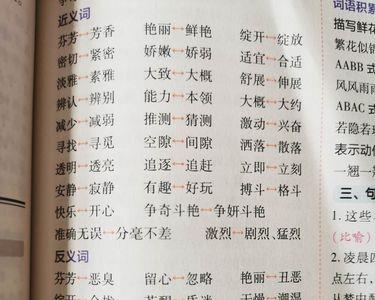 近义词
芬芳↔芳香 艳丽↔鲜艳 绽开↔绽放
密切↔紧密 娇嫩↔娇弱 适宜↔合适
淡雅↔素雅 大致↔大概 舒展↔伸展
辨认↔辨别 能力↔本领 大概↔大约
减少↔减弱 推测↔猜测 激动↔兴奋
寻找↔寻觅 空隙↔间隙 洒落↔散落
透明↔透亮 追逐↔追赶 立即↔立刻
安静↔寂静 有趣↔好玩 搏斗↔格斗
快乐↔开心 争奇斗艳↔争妍斗艳
准确无误↔分毫不差 激烈↔剧烈、猛烈
反义词
芬芳↔恶臭 留心↔忽略 艳丽↔丑恶
词语积累
描写鲜花
繁花似锦
AABB 式
风风雨雨
ABAC 式
若隐若现
表示动作
一翘一
三、句
1. 这些
(比喻)
2. 凌晨四
点左右,
从梦中